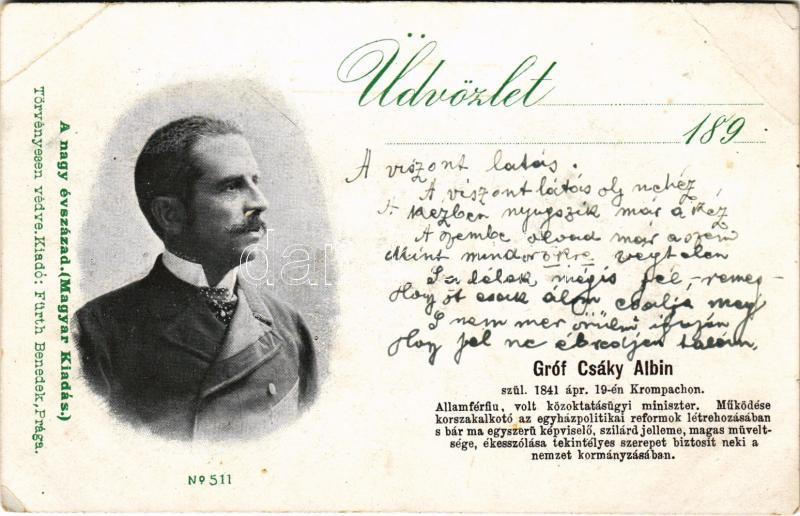 Üdvözlet
189
A viszont látás.
A viszont látás oly nehéz
A kézben nyugszik már a kéz
A szembe olvad már a szem
Mint mindörökre végtelen
S a lélek mégis fél, remeg
Hogy őt csak álom csalja meg
S nem mer örülni igazán
Hogy fel ne ébredjen talán.
Gróf Csáky Albin
szül. 1841 ápr. 19-én Krompachon.
Allamférfiu, volt közoktatásügyi miniszter. Működése
korszakalkotó az egyházpolitikai reformok létrehozásában
s bár ma egyszerű képviselő, szilárd jelleme, magas művelt-
sége, ékesszólása tekintélyes szerepet biztosit neki a
nemzet kormányzásában.
A nagy évszázad.(Magyar Kiadás.)
Törvényesen védve. Kiadó: Fürth Benedek, Prága.
No 511